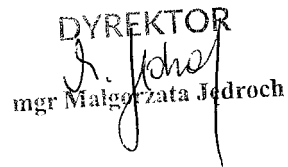 DYREKTOR
mgr Małgorzata Jędroch